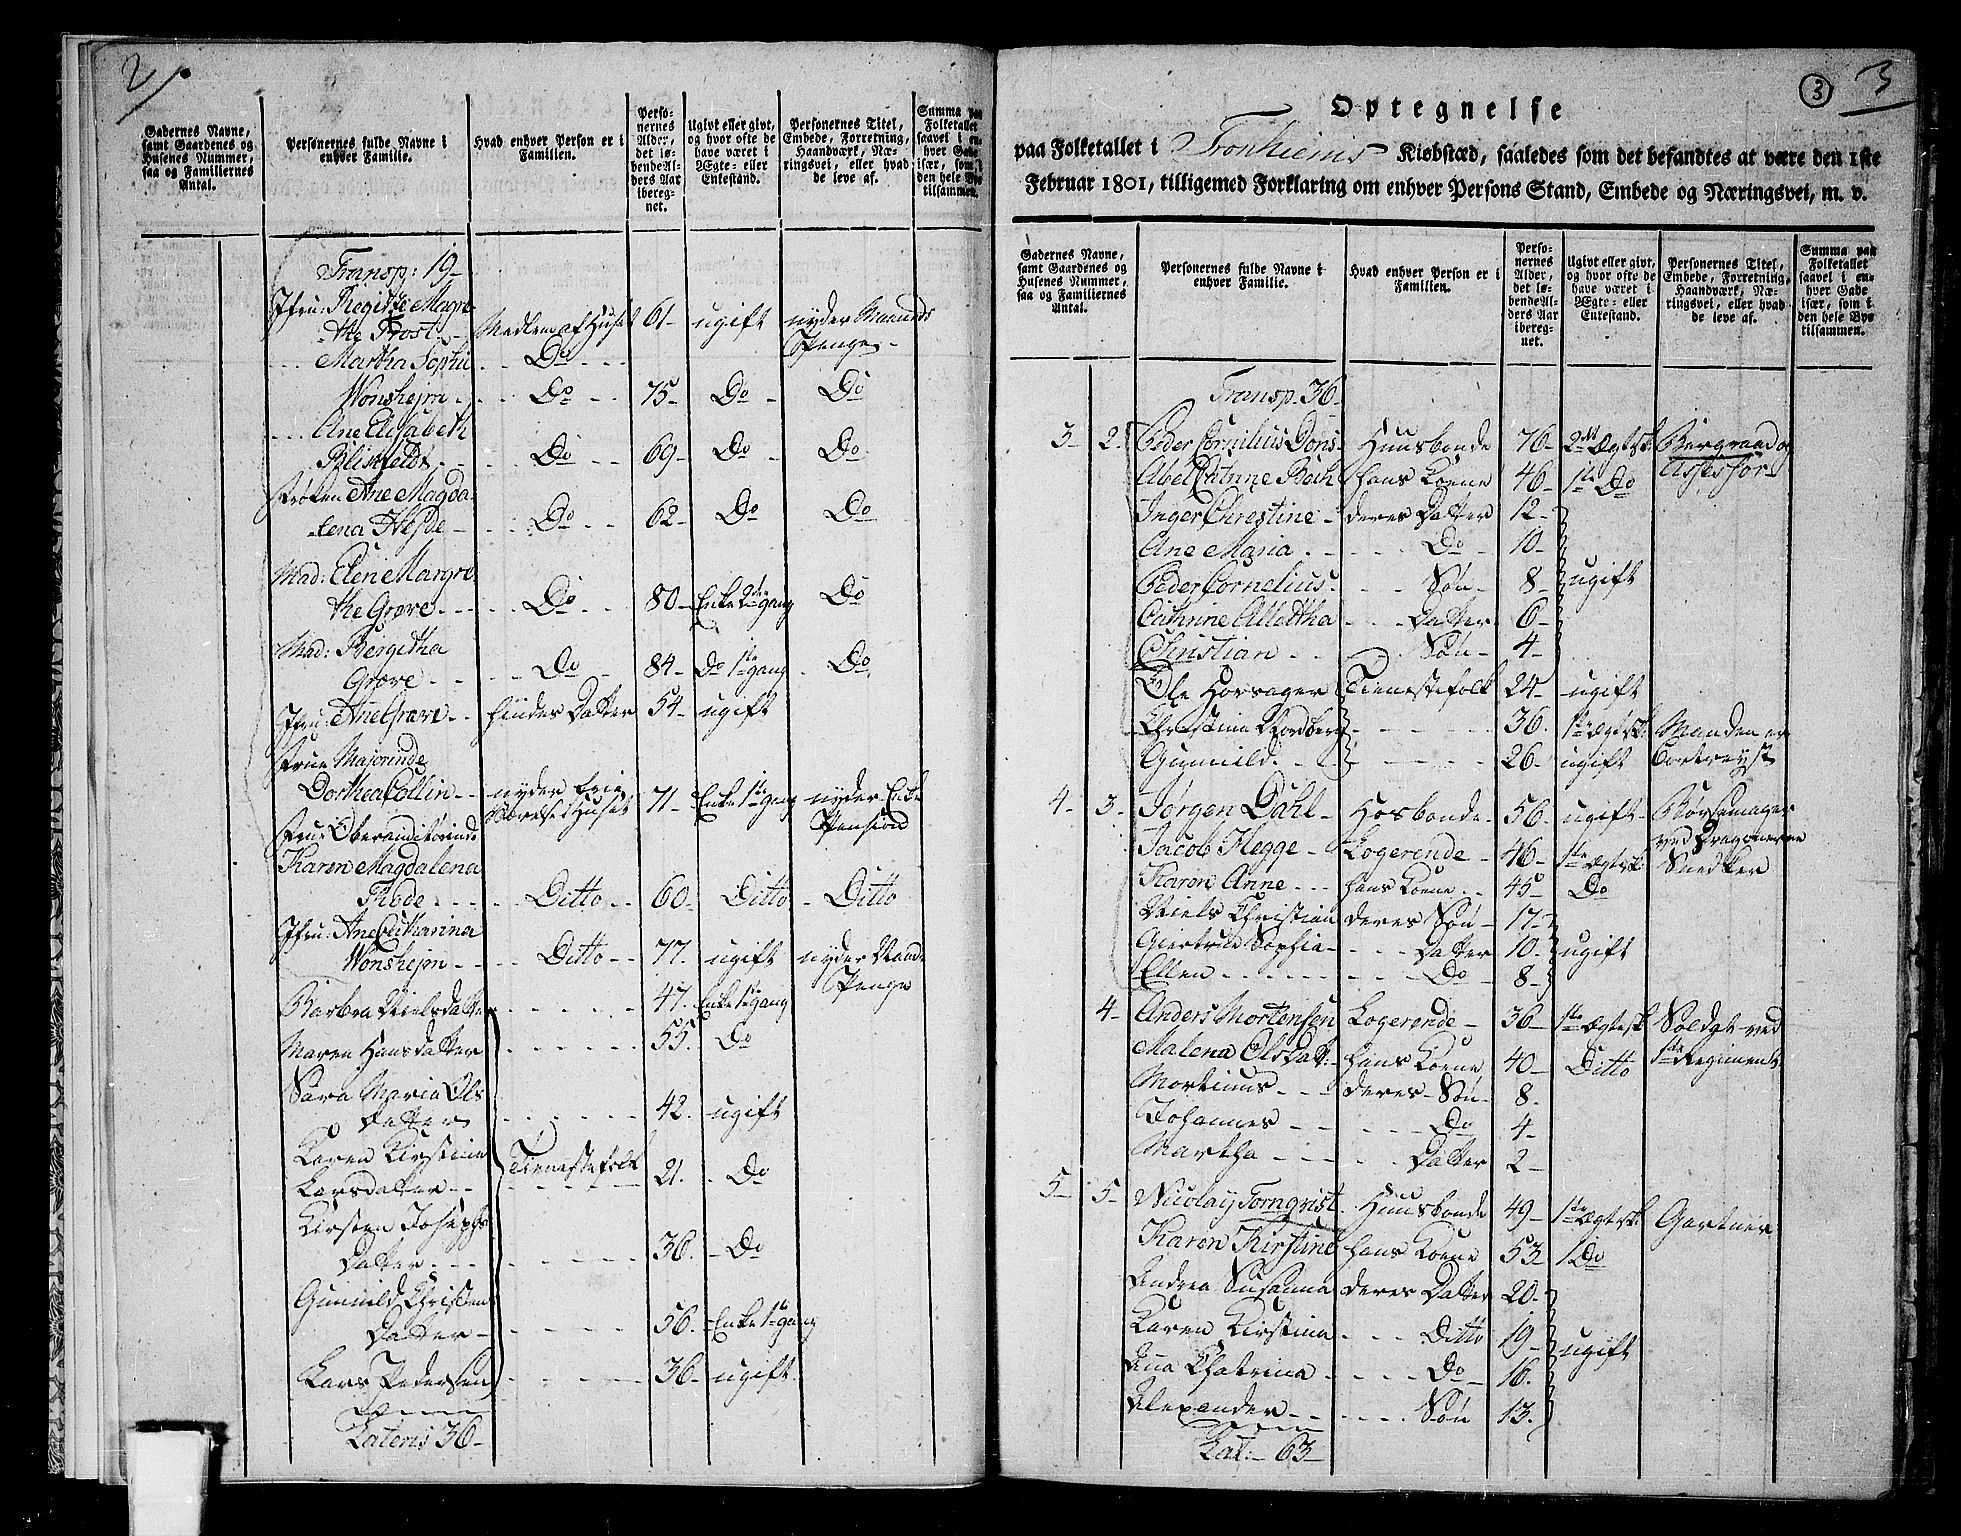 2
Gadernes Navne, samt Gaardenes og Husenes Nummer, saa og Familiernes Antal.
Personernes fulde Navne i enhver Familie.
Hvad enhver Person er i Familien.
Personernes Alder, det løbende Alders Aar iberegnet.
Ugivt eller givt, og hvor ofte de have været i Ægte- eller Enkestand.
Personernes Titel, Embede, Forretning, Haandværk, Næringsvei, eller hvad de leve af.
Summa paa Folketallet saavel i enhver Gade især, som i den hele Bye tilsammen.
Transp: 19-
Jfru: Regitte Magre
the Frost - Medlem af Huset 61- ugift nyder Maaneds
Penge -
Martha Sophie Do
Wonsheim - Do 75- Do Do
Ane Elisabeth
Blixfeldt - Do 69- Do Do
Frøken Ane Magda
lena Hejde - Do 62- Do Do
Mad: Elen Margre
the Grøve - Do 80- Enke 2de gang Do
Mad: Bergitha
Grøve - Do 84- Do 1ste gang Do
Jfru: Ane Grøve - hindes Datter 54- ugift
Frue Majorinde
Dorthea Collin - nyder frie 71- Enke 1ste gang nyder Enke
Værelse i Huset Pension
Frue Oberauditørinde
Karen Magdalena
Thode - Ditto 60- Ditto Ditto
Jfru: Ane Catharina
Wonshejm - Ditto 77- ugift nyder Maand.
Penge
Barbra Nielsdatter 47. Enke 1ste gang
Maren Hansdatter 55. Do
Sara Maria Ols
Datter 42. ugift
Karen Kirstina Tienestefolk
Larsdatter - 21. Do
Kirsten Josephs
Datter - 36. Do
Gunnild Christen
Datter - 56. Enke 1ste gang
Lars Pedersen 36- ugift
Lateris 36-
3 3
Optegnelse
paa Folketallet i Tronhiems Kiøbstæd, saaledes som det befandtes at være den 1ste
Februar 1801, tilligemed Forklaring om enhver Persons Stand, Embede og Næringsvei, m. v.
Gadernes Navne, samt Gaardenes og Husenes Nummer, saa og Familiernes Antal.
Personernes fulde Navne i enhver Familie.
Hvad enhver Person er i Familien.
Personernes Alder, det løbende Alders Aar iberegnet.
Ugivt eller givt, og hvor ofte de have været i Ægte- eller Enkestand.
Personernes Titel, Embede, Forretning, Haandværk, Næringsvei, eller hvad de leve af.
Summa paa Folketallet saavel i enhver Gade især, som i den hele Bye tilsammen.
Transp. 36-
3- 2. Peder Cornilius Dons Huusbonde 76- 2det Ægtsk. Bergraad og
Abel Catrine Bach hans Koene 46- 1ste Do Assessor
Inger Chrestine - deres Datter 12-
Ane Maria - Do 10-
Peder Cornelius - Søn 8- ugift
Cathrine Alletha - Datter 6-
Christian - Søn 4-
Ole Horsager Tienestefolk 24- ugift
Christina Nordberg 36. 1ste Ægtsk. Manden er
Gunnild 26- ugift bortreyst
4- 3. Jørgen Dahl - Hosbonde 56- ugift Bøssemager
ved Dragonerne
Jacob Hegge - Logerende - 46- 1ste Ægtsk Snedker
Karen Anne - hans Koene 45- Do
Niels Christian deres Søn 17-
Giertrue Sophia - Datter 10- ugift
Ellen - Do 8-
4- Anders Mortensen Logerende - 36- 1ste Ægtesk Soldat ved
Malena Olsdatt: hans Koene 40- Ditto 1ste Regiment
Mortinus - deres Søn - 8.
Johannes - Do 4-
Martha - Datter 2-
5- 5- Nicolaij Tornqvist Huusbonde 49- 1ste Ægtsk. Gartner
Karen Kirstine hans Koene 53- 1 Do
Andrea Susanna deres Datter 20-
Karen Kirstina - Ditto 19- ugift
Ana Chatrina - Do 16.
Alexander - Søn 13.
Lat: - 63-